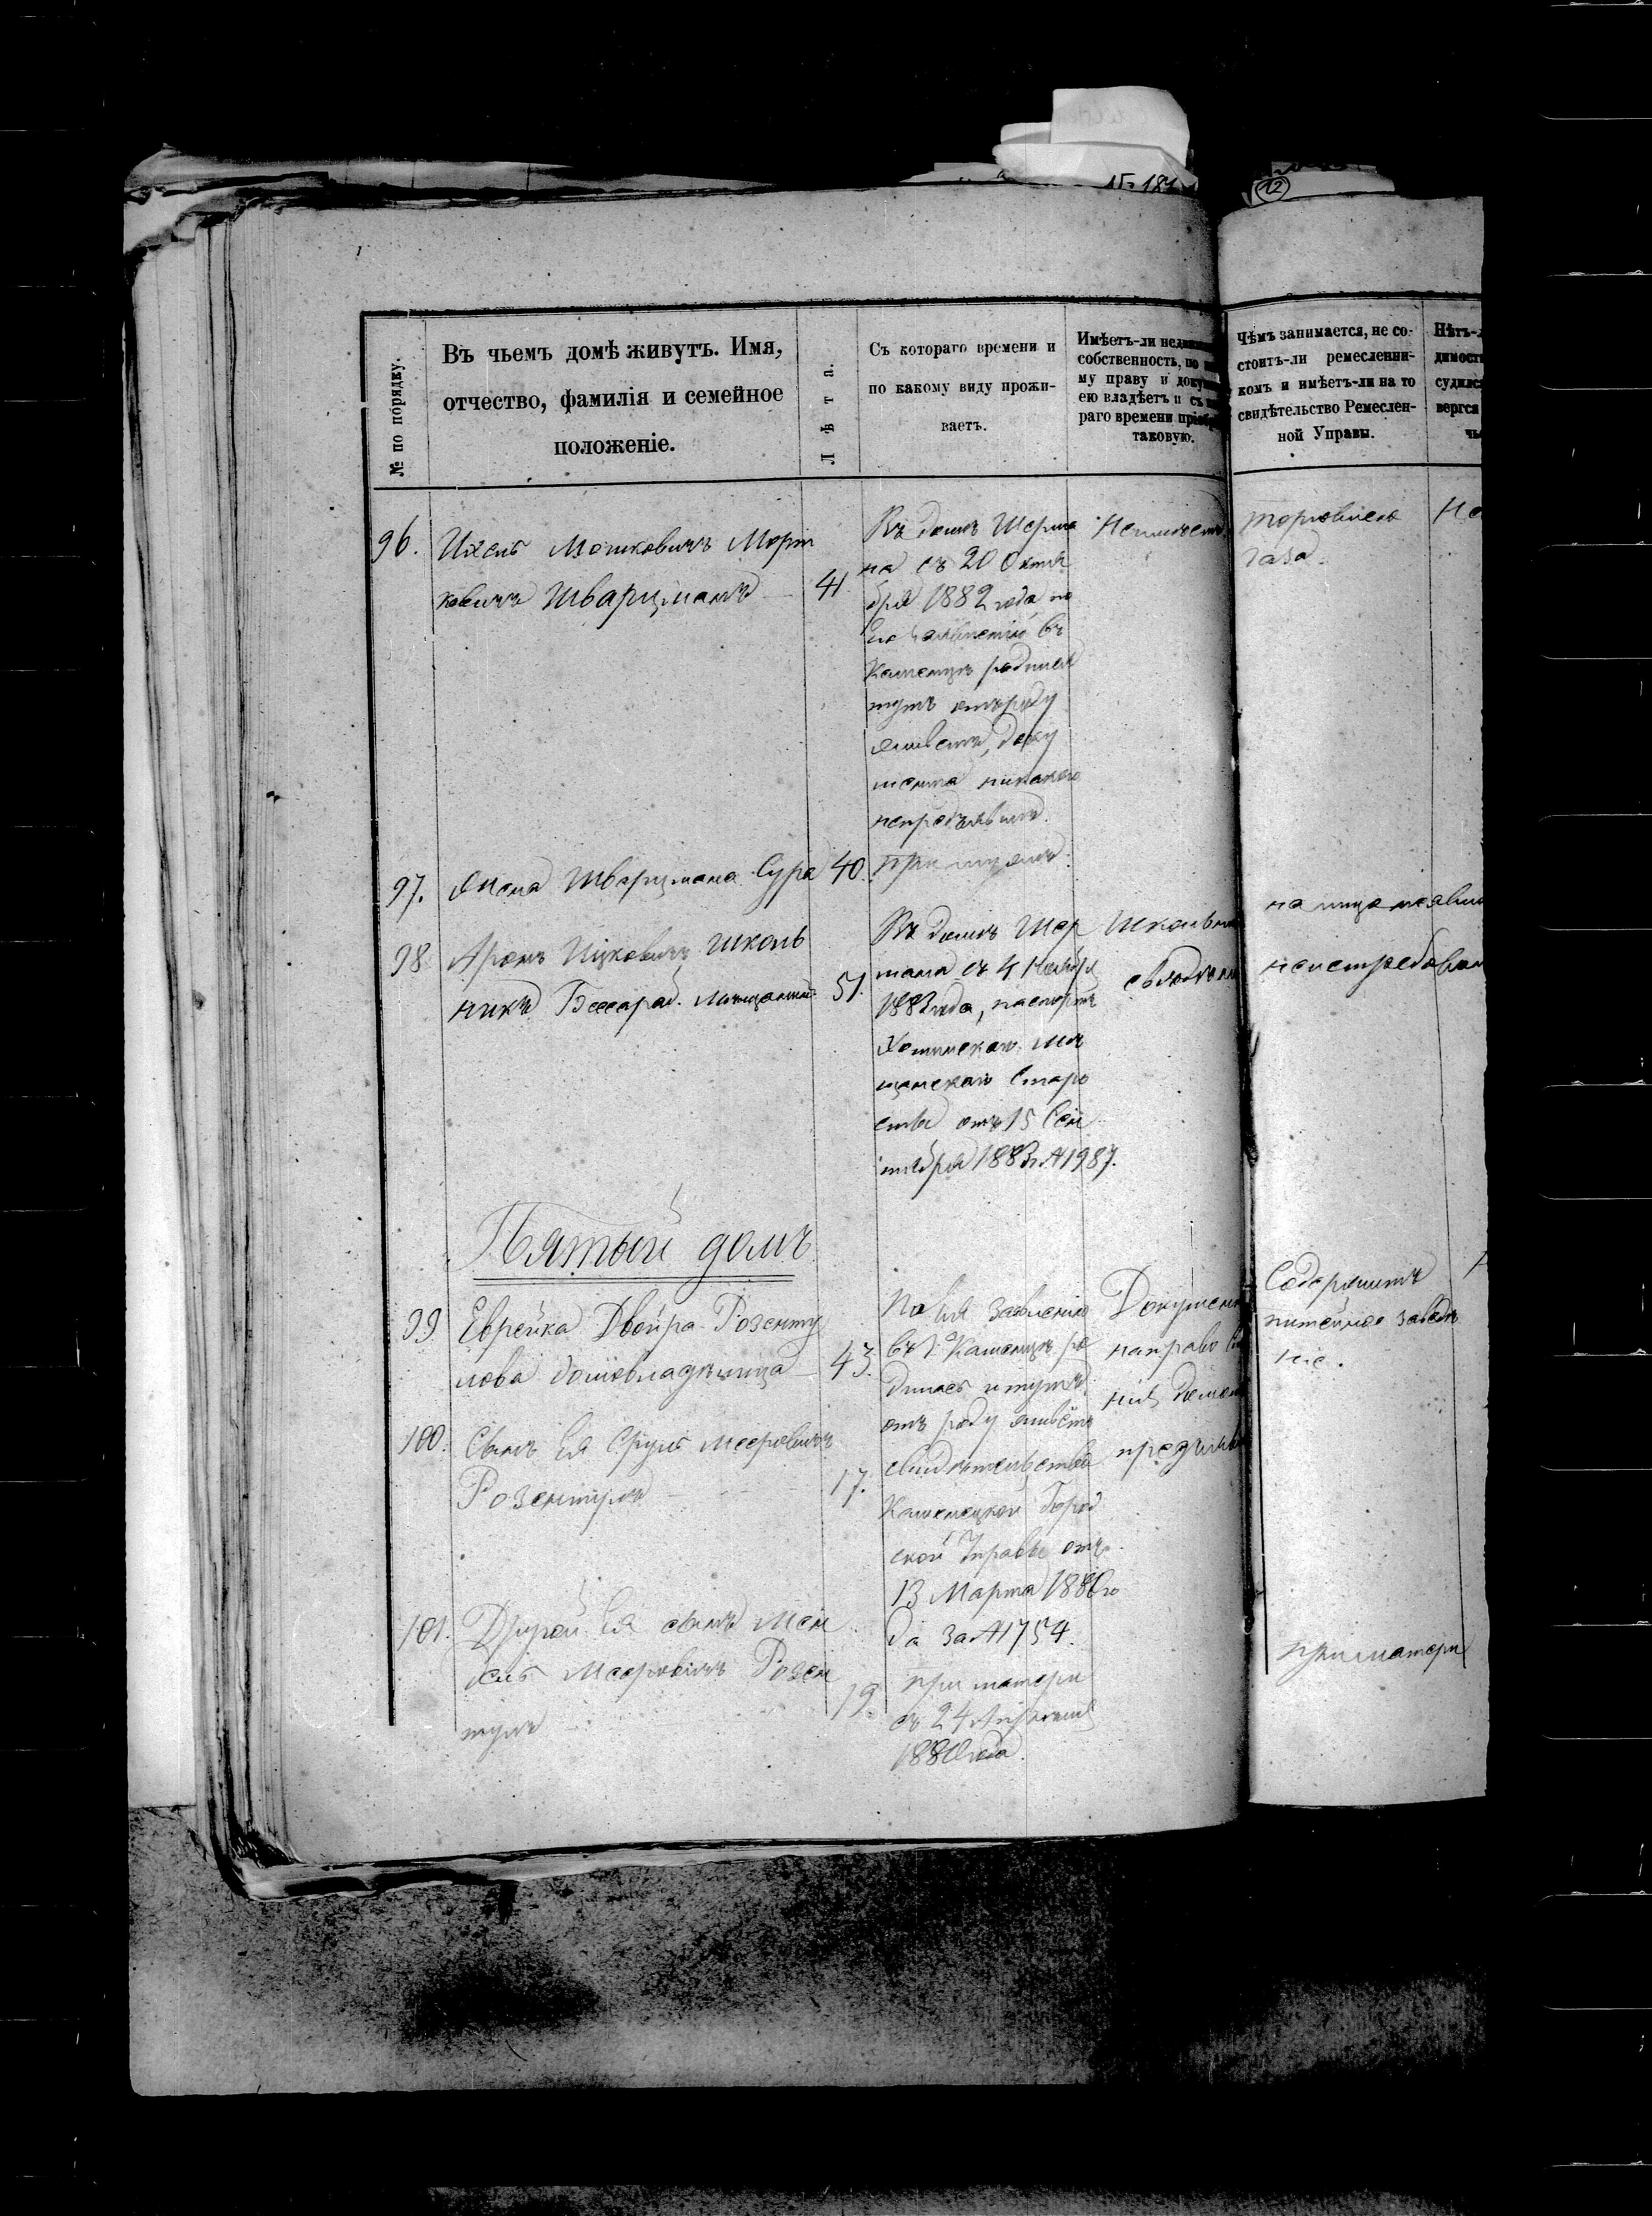 № 181
12
№ по порядку.
Въ чьемъ домѣ живутъ. Имя,
отчество, фамилія и семейное
положеніе.
Лѣта.
Съ котораго времени и
по какому виду прожи-
ваетъ.
Имѣетъ-ли
собственность, по
му праву и
ею владѣетъ и съ
раго времени
таковую.
Чѣмъ занимается, не со-
стоитъ-ли ремесленни-
комъ и имѣетъ-ли на то
свидѣтельство Ремеслен-
ной Управы.
Нѣтъ-
96.
Ихель Мошковичъ
ковичъ Шварцманъ
41
Въ домѣ Шерма
на съ 20 Октя
бря 1882 года, по
въ
Каменцѣ родился
тутъ отъроду
живетъ, доку
мента никакого
непредъявилъ.
Неимѣетъ
торговлею
97.
Жена Шварцмана Сура
40.
при мужѣ.
98
Аронъ Ицковичъ Школь
никъ Бессараб. Мѣщанинъ
51.
Въ домѣ Шер
мана съ 4 Ноября
1883 года, паспортъ
Хотинскаго Мѣ
щанскаго Старо
ства отъ 15 Сен
тября 1883 г. № 1987.
Пятый домъ
99
Еврейка Двойра Розенту
лова домовладѣлица
43.
По ея заявленію
въ г. Каменцѣ ро
дилась и тутъ
отъ роду живётъ
свидѣтельство
Каменецкой Город
ской Управы отъ
13 Марта 1880 го
да за № 1754.
Содержитъ
питейное заведе
ніе.
100.
Сынъ ея Сруль Мееровичъ
Розентулъ
17.
101.
Другой ея сынъ Мен
Мееровичъ Розен
тулъ
19.
при матери
съ 24 Апреля
1880 года.
при матери